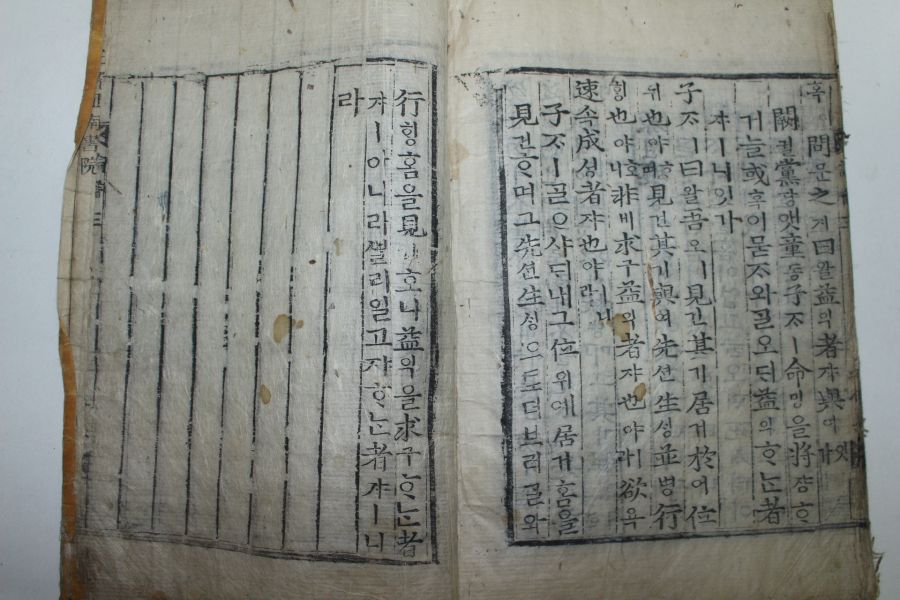 問문之지曰왈益익者쟈與여
闕궐黨당앳童동子ᄌᆞㅣ命명을將쟝ᄒᆞ
거늘或혹이묻ᄌᆞ와ᄀᆞᆯ오ᄃᆡ益익ᄒᆞᄂᆞᆫ者
쟈ㅣ니잇가
子ᄌᆞㅣ曰왈吾오ㅣ見견其기居거於어位
위也야ᄒᆞ며見견其기與여先션生ᄉᆡᆼ並병行
ᄒᆡᆼ也야ᄒᆞ니非비求구益익者쟈也야ㅣ라欲욕
速속成셩者쟈也야ㅣ니라
子ᄌᆞㅣᄀᆞᆯᄋᆞ샤ᄃᆡ내그位위예居거홈을
見견ᄒᆞ며그先션生ᄉᆡᆼ으로더브러ᄀᆞᆯ와
行ᄒᆡᆼ홈을見견호니益익을求구ᄒᆞᄂᆞᆫ者
쟈ㅣ아니라ᄲᆞᆯ리일고쟈ᄒᆞᄂᆞᆫ者쟈ㅣ니
라
書院